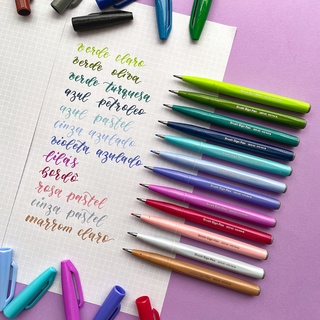 verde claro
verde oliva
verde turquesa
azul petróleo
azul pastel
cinza azulado
violeta azulado
lilás
bordô
rosa pastel
cinza pastel
marrom claro